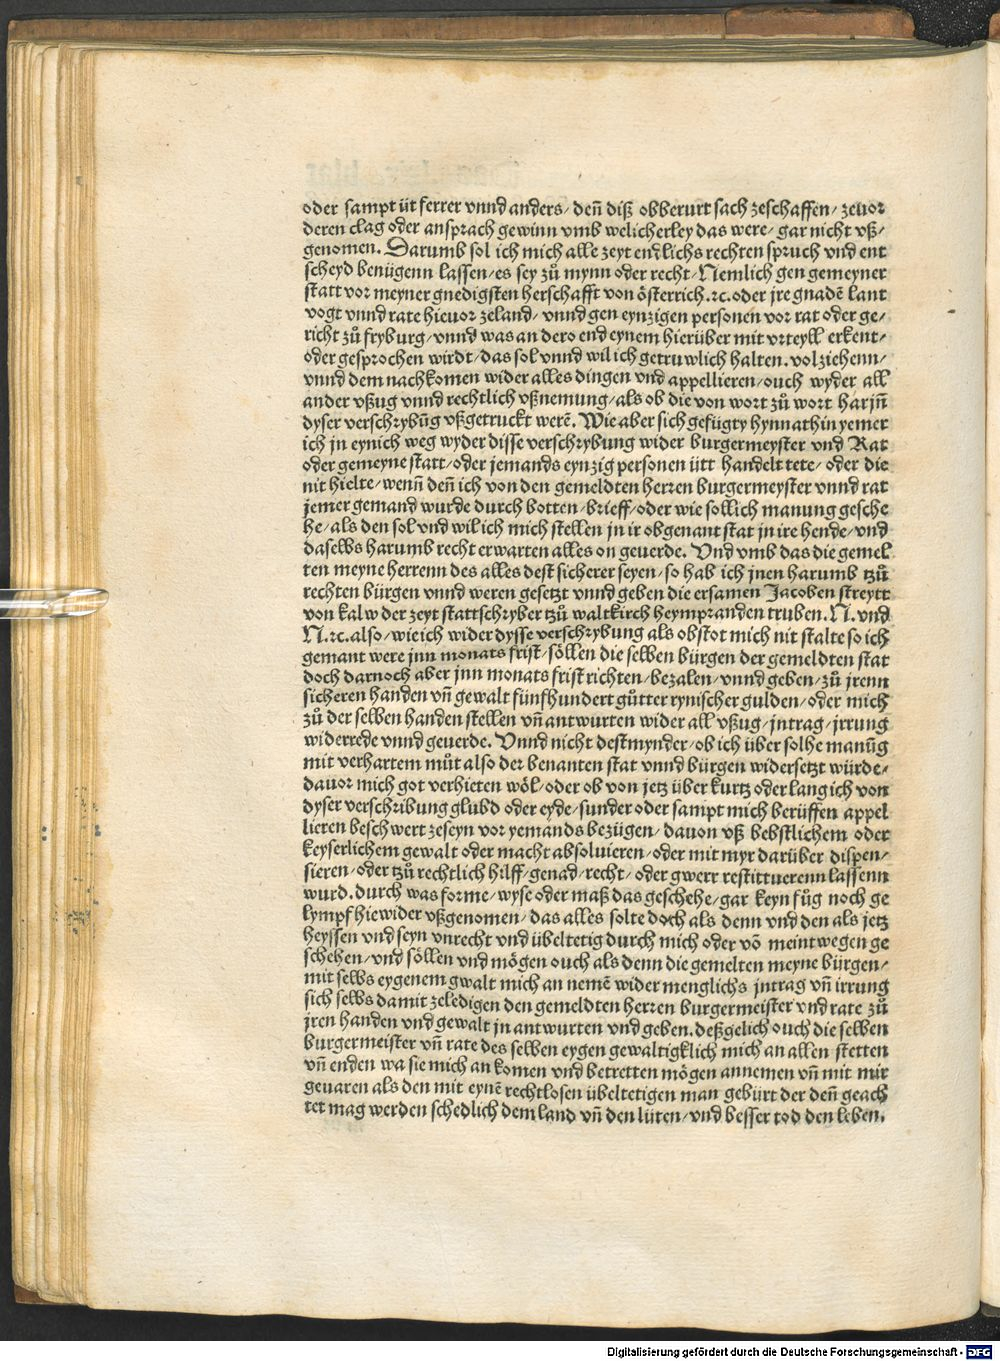 oder sampt üt ferrer vnnd anders/ deñ diß obberurt sach zeschaffen/ zeuor
deren clag oder ansprach gewinn vmb welicherley das were/ gar nicht vß/
genomen. Darumb sol ich mich alle zeyt endlichs rechten spruch vnd ent
scheyd benügenn lassen/ es sey zů mynn oder recht/ Nemlich gen gemeyner
statt vor meyner gnedigsten herschafft von österrich .ꝛc. oder jre gnadē lant
vogt vnnd rate hieuor zeland/ vnnd gen eynzigen personen vor rat oder ge/
richt zů fryburg/ vnnd was an dero end eynem hierüber mit vrteyll erkent/
oder gesprochen wirdt/ das sol vnnd wil ich getruwlich halten. volziehenn/
vnnd dem nachkomen wider alles dingen vnd appellieren/ ouch wyder all
ander vßzug vnnd rechtlich vßnemung/ als ob die von wort zů wort har jñ
dyser verschrybūg vßgetruckt werē. Wie aber sich gefügty hynnathin yemer
ich jn eynich weg wyder disse verschrybung wider burgermeyster vnd Rat
oder gemeyne statt/ oder jemands eynzig personen ütt handelt tete/ oder die
nit hielte/ wenñ deñ ich von den gemeldten herren burgermeyster vnnd rat
jemer gemand wurde durch botten/ brieff/ oder wie sollich manung gesche
he/ als den sol vnd wil ich mich stellen jn ir obgenant stat jn ire hende/ vnd
daselbs harumb recht erwarten alles on geuerde. Vnd vmb das die gemel
ten meyne herrenn des alles dest sicherer seyen/ so hab ich jnen harumb tzů
rechten bürgen vnnd weren gesetzt vnnd geben die ersamen Jacoben streytt
von kalw der zeyt stattschryber tzů waltkirch heympranden truben. N. vnd
N. ꝛc. also/ wie ich wider dysse verschrybung als obstot mich nit stalte so ich
gemant were jnn monats frist/ söllen die selben bürgen der gemeldten stat
doch darnoch aber jnn monats frist richten/ bezalen/ vnnd geben/ zů jrenn
sicheren handen vñ gewalt fünfhundert gůtter rynischer gulden/ oder mich
zů der selben handen stellen vñ antwurten wider all vßzug/ jntrag/ jrrung
widerrede vnnd geuerde. Vnnd nicht destmynder/ ob ich über solhe manūg
mit verhartem můt also der benanten stat vnnd bürgen widersetzt würde/
dauor mich got verhieten wöl/ oder ob von jetz über kurtz oder lang ich von
dyser verschribung glubd oder eyde/ sunder oder sampt mich berüffen appel
lieren beschwert zeseyn vor yemands bezügen/ dauon vß bebstlichem oder
keyserlichem gewalt oder macht absoluieren/ oder mit myr darüber dispen/
sieren/ oder tzů rechtlich hilff/ genad/ recht/ oder gwerr restittuerenn lassenn
wurd. durch was forme/ wyse oder maß das geschehe/ gar keyn fůg noch ge
lympf hiewider vßgenomen/ das alles solte doch als denn vnd den als jetz
heyssen vnd seyn vnrecht vnd übeltetig durch mich oder vō meint wegen ge
schehen/ vnd söllen vnd mögen ouch als denn die gemelten meyne bürgen/
mit selbs eygenem gwalt mich an nemē wider menglichs jntrag vñ irrung
sich selbs damit zeledigen den gemeldten herren burgermeister vnd rate zů
jren handen vnd gewalt jn antwurten vnd geben. deßgelich ouch die selben
burgermeister vñ rate des selben eygen gewaltigklich mich an allen stetten
vñ enden wa sie mich an komen vnd betretten mögen annemen vñ mit mir
geuaren als den mit eynē rechtlosen übeltetigen man gebürt der deñ geach
tet mag werden schedlich dem land vñ den lüten/ vnd besser tod den leben.
Digitalisierung gefördert durch die Deutsche Forschungsgemeinschaft - DFG